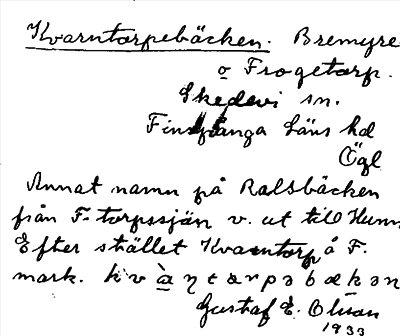 Kvarntorpebäcken. Bremyre
o Frogetorp.
Skedevi sn.
Finspånga Läns hd
Ögl
Annat namn på Ralsbäcken
från F-torpssjön v. ut till Hunn
Efter stället Kvarntorp å F.
mark.
Gustaf E. Olson
1933